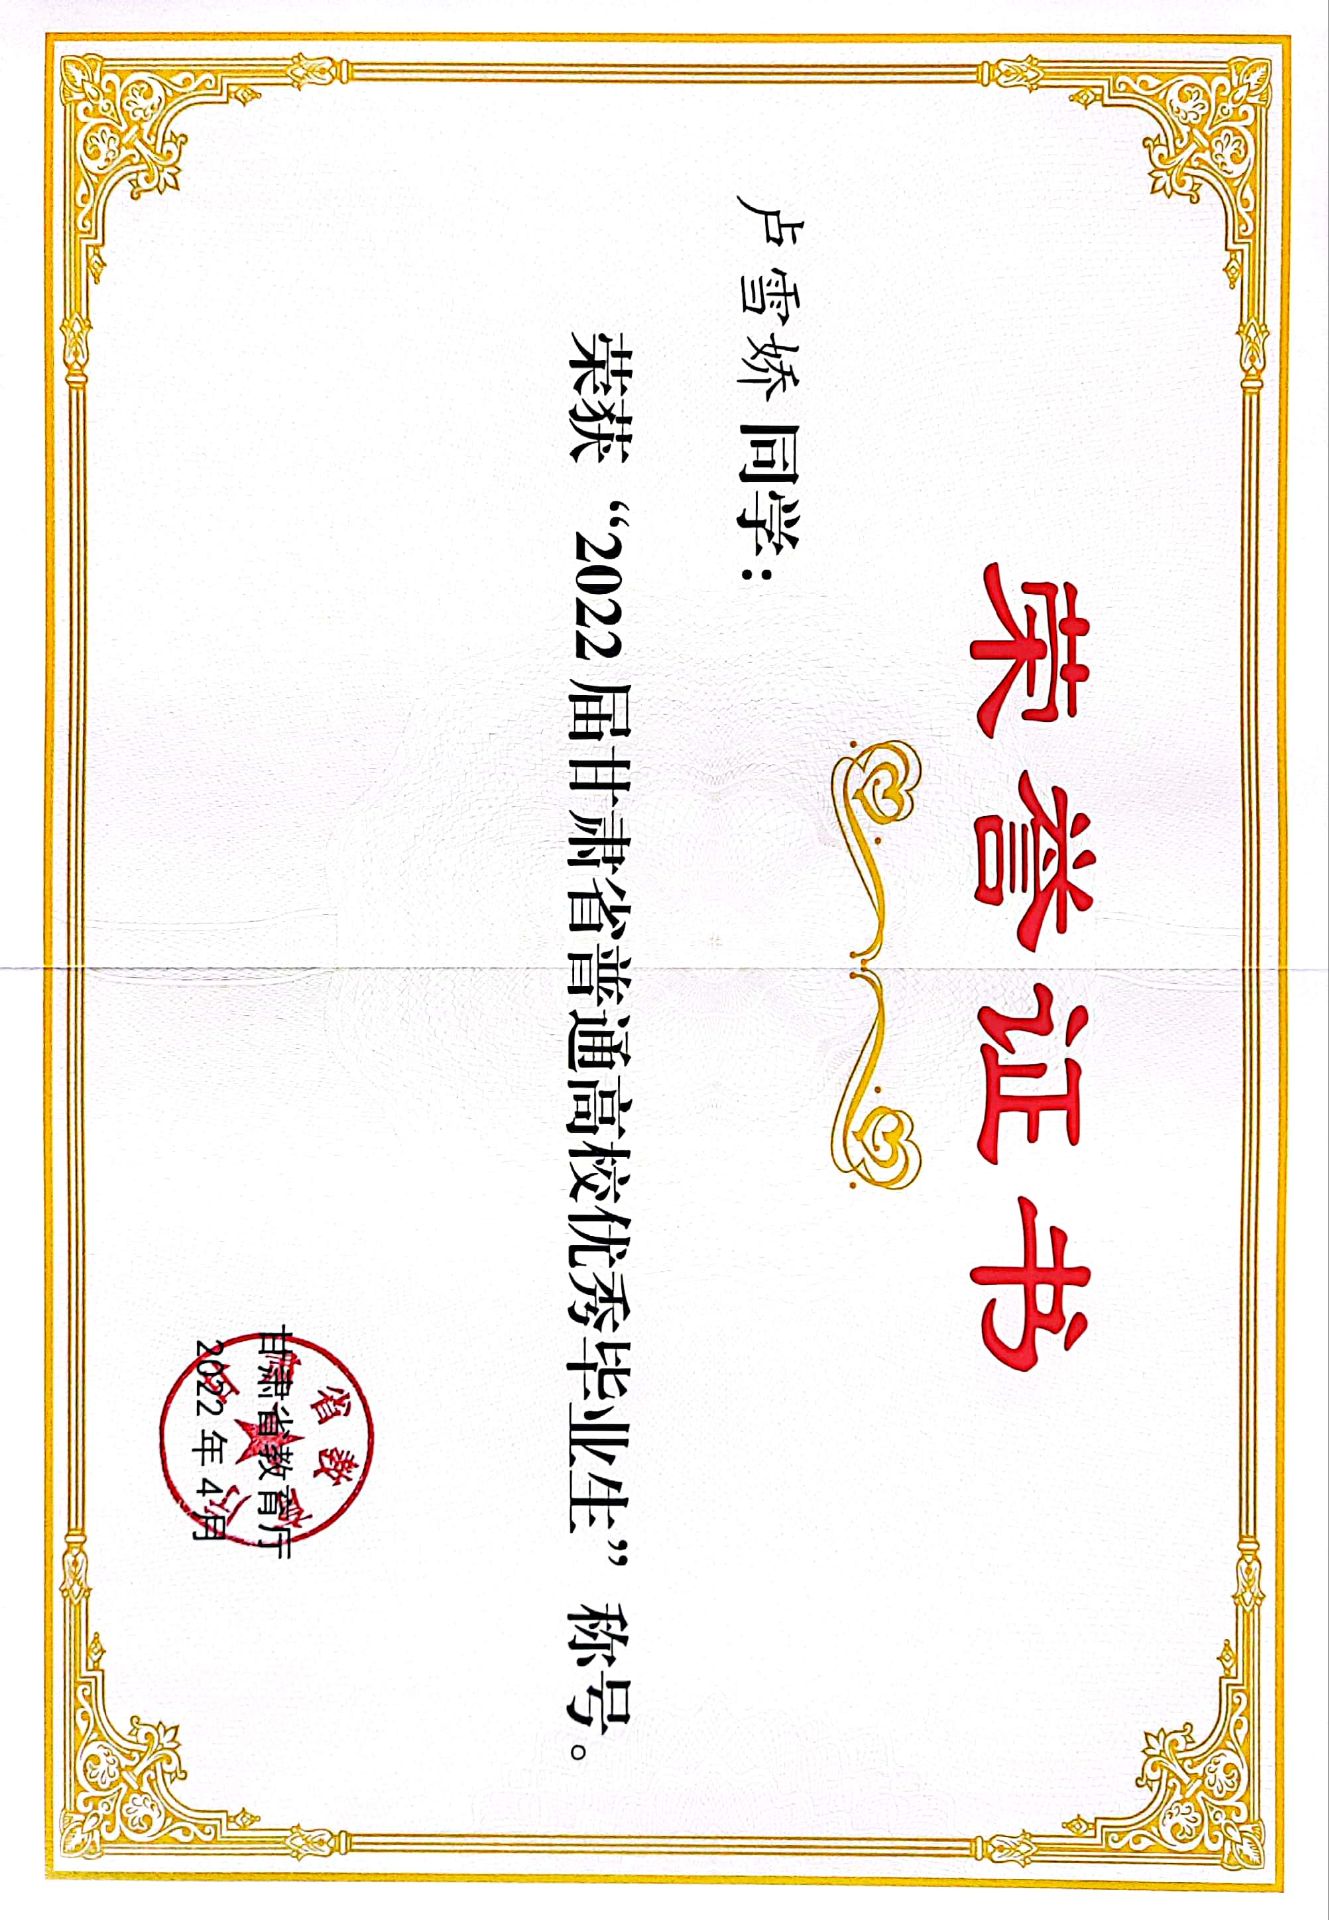 荣誉证书
卢雪娇同学：
荣获“2022届甘肃省普通高校优秀毕业生”称号。
甘肃省教育厅
2022年4月
甘肃省教育厅